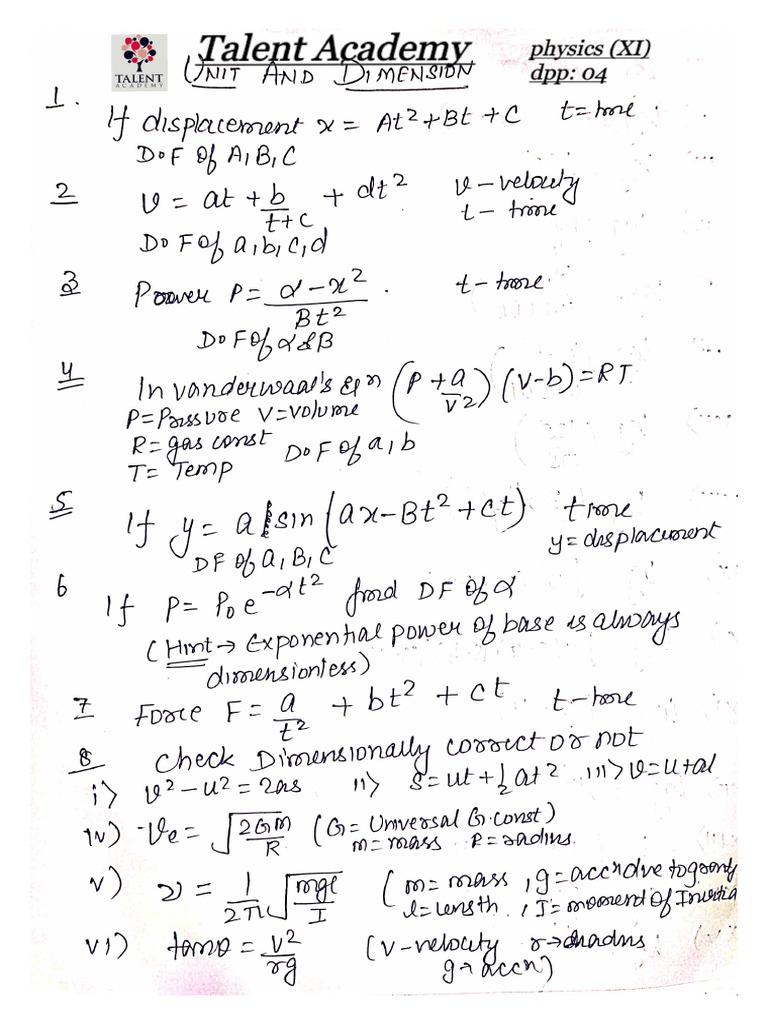 TALENT
ACADEMY
Talent Academy physics (XI)
UNIT AND DIMENSION dpp: 04
1. If displacement x = At² + Bt + C t = time
D.F of A, B, C
2 v = at + b/(t+c) + dt² v – velocity
t – time
D.F of a, b, c, d
3 Power P = (α – x²)/(Bt²) t – time
D.F of α & B
4 In vanderwaal's eqn (P + a/V2) (V-b) = RT
P = Pressure V = volume
R = gas const D.F of a, b
T = Temp
5 If y = a sin (ax – Bt² + Ct) time
y = displacement
DF of a, B, C
6 If P = P₀ e^(-αt²) find DF of α
(Hint → Exponential power of base is always
dimensionless)
7 Force F = a/t² + bt² + ct. t – time
8 Check Dimensionally correct or not
i> v² – u² = 2as ii> S = ut + ½ at² iii> v = u + at
iv) Ve = √(2Gm/R) (G = Universal G. Const)
m = mass R = radius.
v) ν = 1/2π √(mgl/I) (m = mass, g = accn due to gravity
l = length, I = moment of Inertia
vi) tanθ = v²/rg (v – velocity r → radius
g → accn)